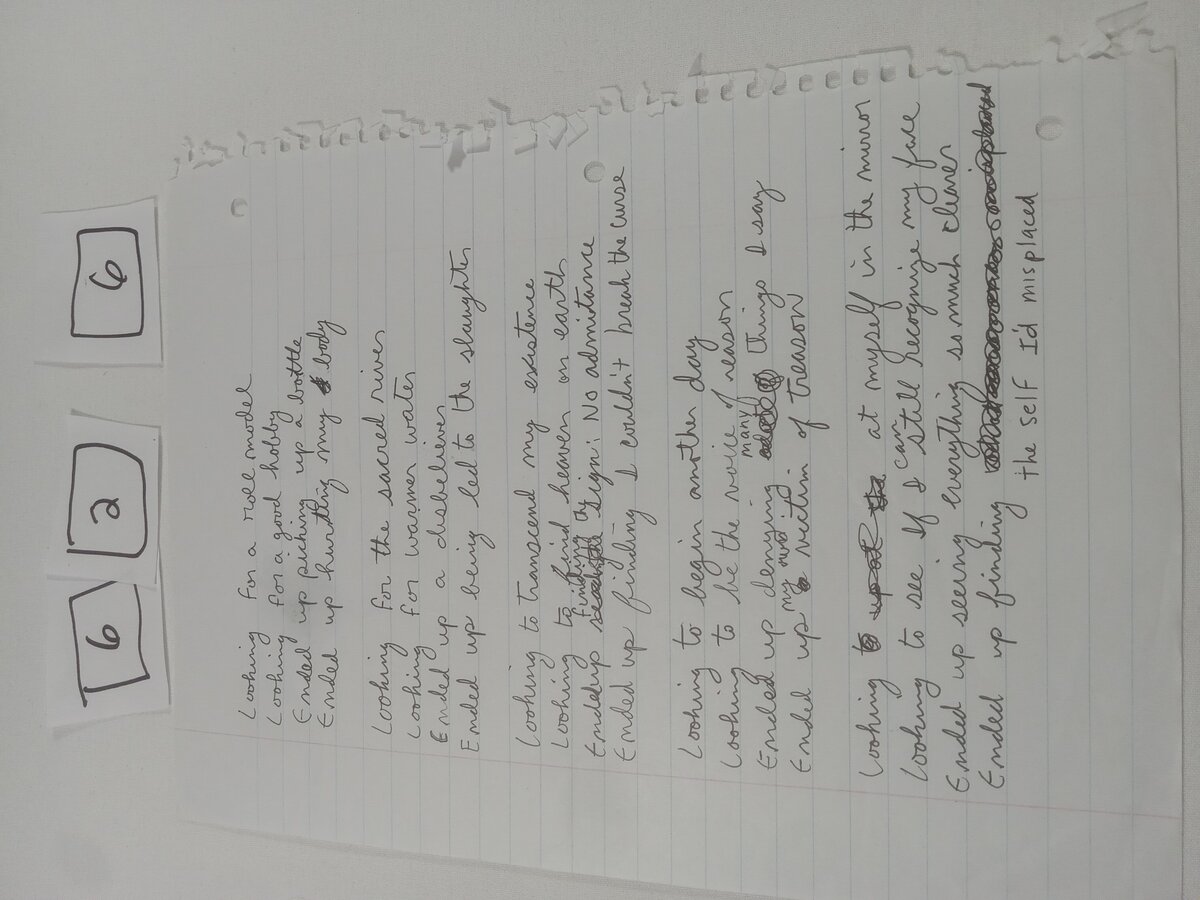 6 2 6
Looking for a role model
Looking for a good hobby
Ended up picking up a bottle
Ended up hurting my body
Looking for the sacred river
Looking for warmer water
Ended up a disbeliever
Ended up being led to the slaughter
Looking to transcend my existence
Looking to find heaven on earth
Ended up finding the sign: No admitance
Ended up finding I couldn't break the curse
Looking to begin another day
Looking to be the voice of reason
Ended up denying many things I say
Ended up my own victim of treason
Looking at myself in the mirror
Looking to see If I can still recognize my face
Ended up seeing everything so much clearer
Ended up finding
the self I'd misplaced